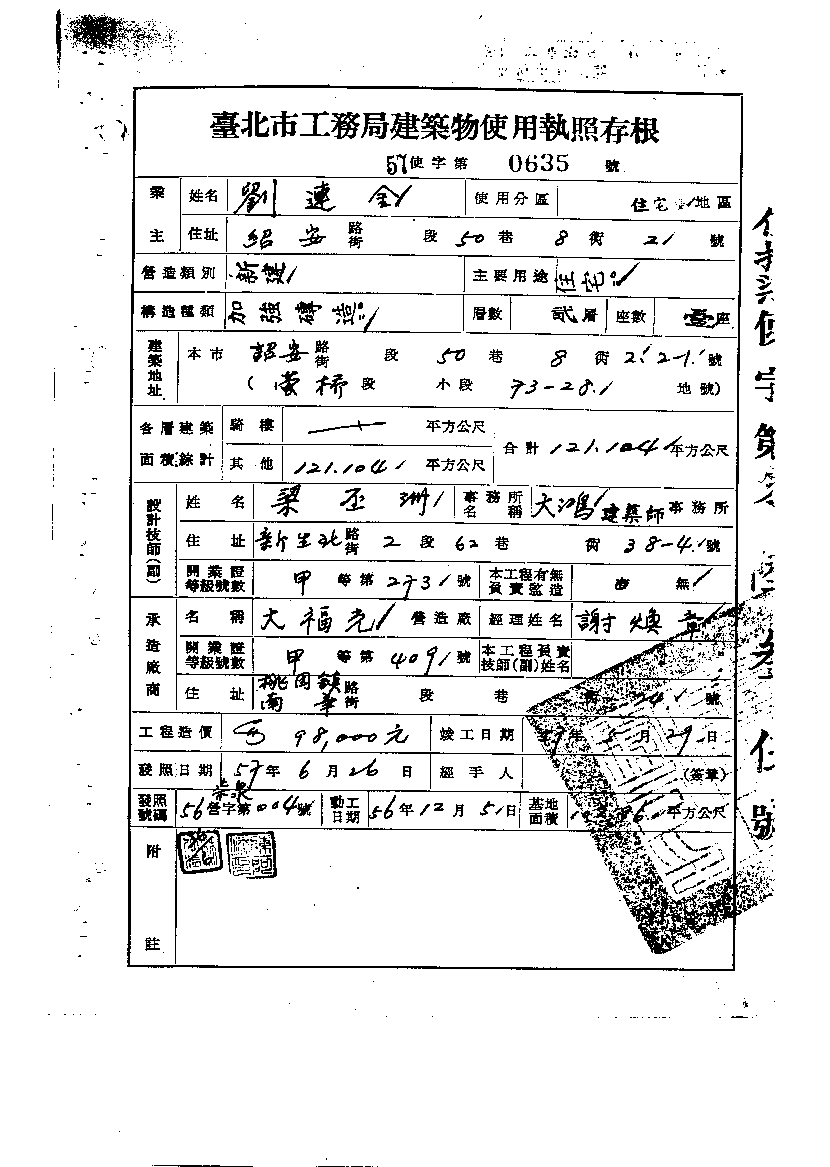 臺北市工務局建築物使用執照存根
57使字第 0635 號
業主 姓名 劉連 使用分區 住宅 地區
住址 紹安 路街 段 50 巷 8 衖 21 號
營造類別 新建 主要用途 住宅
構造種類 加強磚造 層數 貳層 座數 座
建築地址 本市 詔安 路街 段 50 巷 8 衖 21 號
( 段 小段 73-28 地號)
各層建築面積綜計 騎樓 平方公尺 合計 121.104 平方公尺
其他 121.104 平方公尺
設計技師(副) 姓名 梁丕 事務所名稱 大鴻建築師事務所
住址 新生北 路街 2 段 62 巷 衖 38-4 號
開業證等級號數 甲 等第 273 號 本工程有無負責監造 無
承造廠商 名稱 大福光 營造廠 經理姓名 謝煥章
開業證等級號數 甲 等第 409 號 本工程負責技師(副)姓名
住址 桃園鎮南華 路街 段 巷 衖 號
工程造價 98,000元 竣工日期 年 5 月 29 日
發照日期 57 年 6 月 26 日 經手人 (簽章)
發照號碼 56營字第004號 動工日期 56年12月5日 基地面積 平方公尺
附註